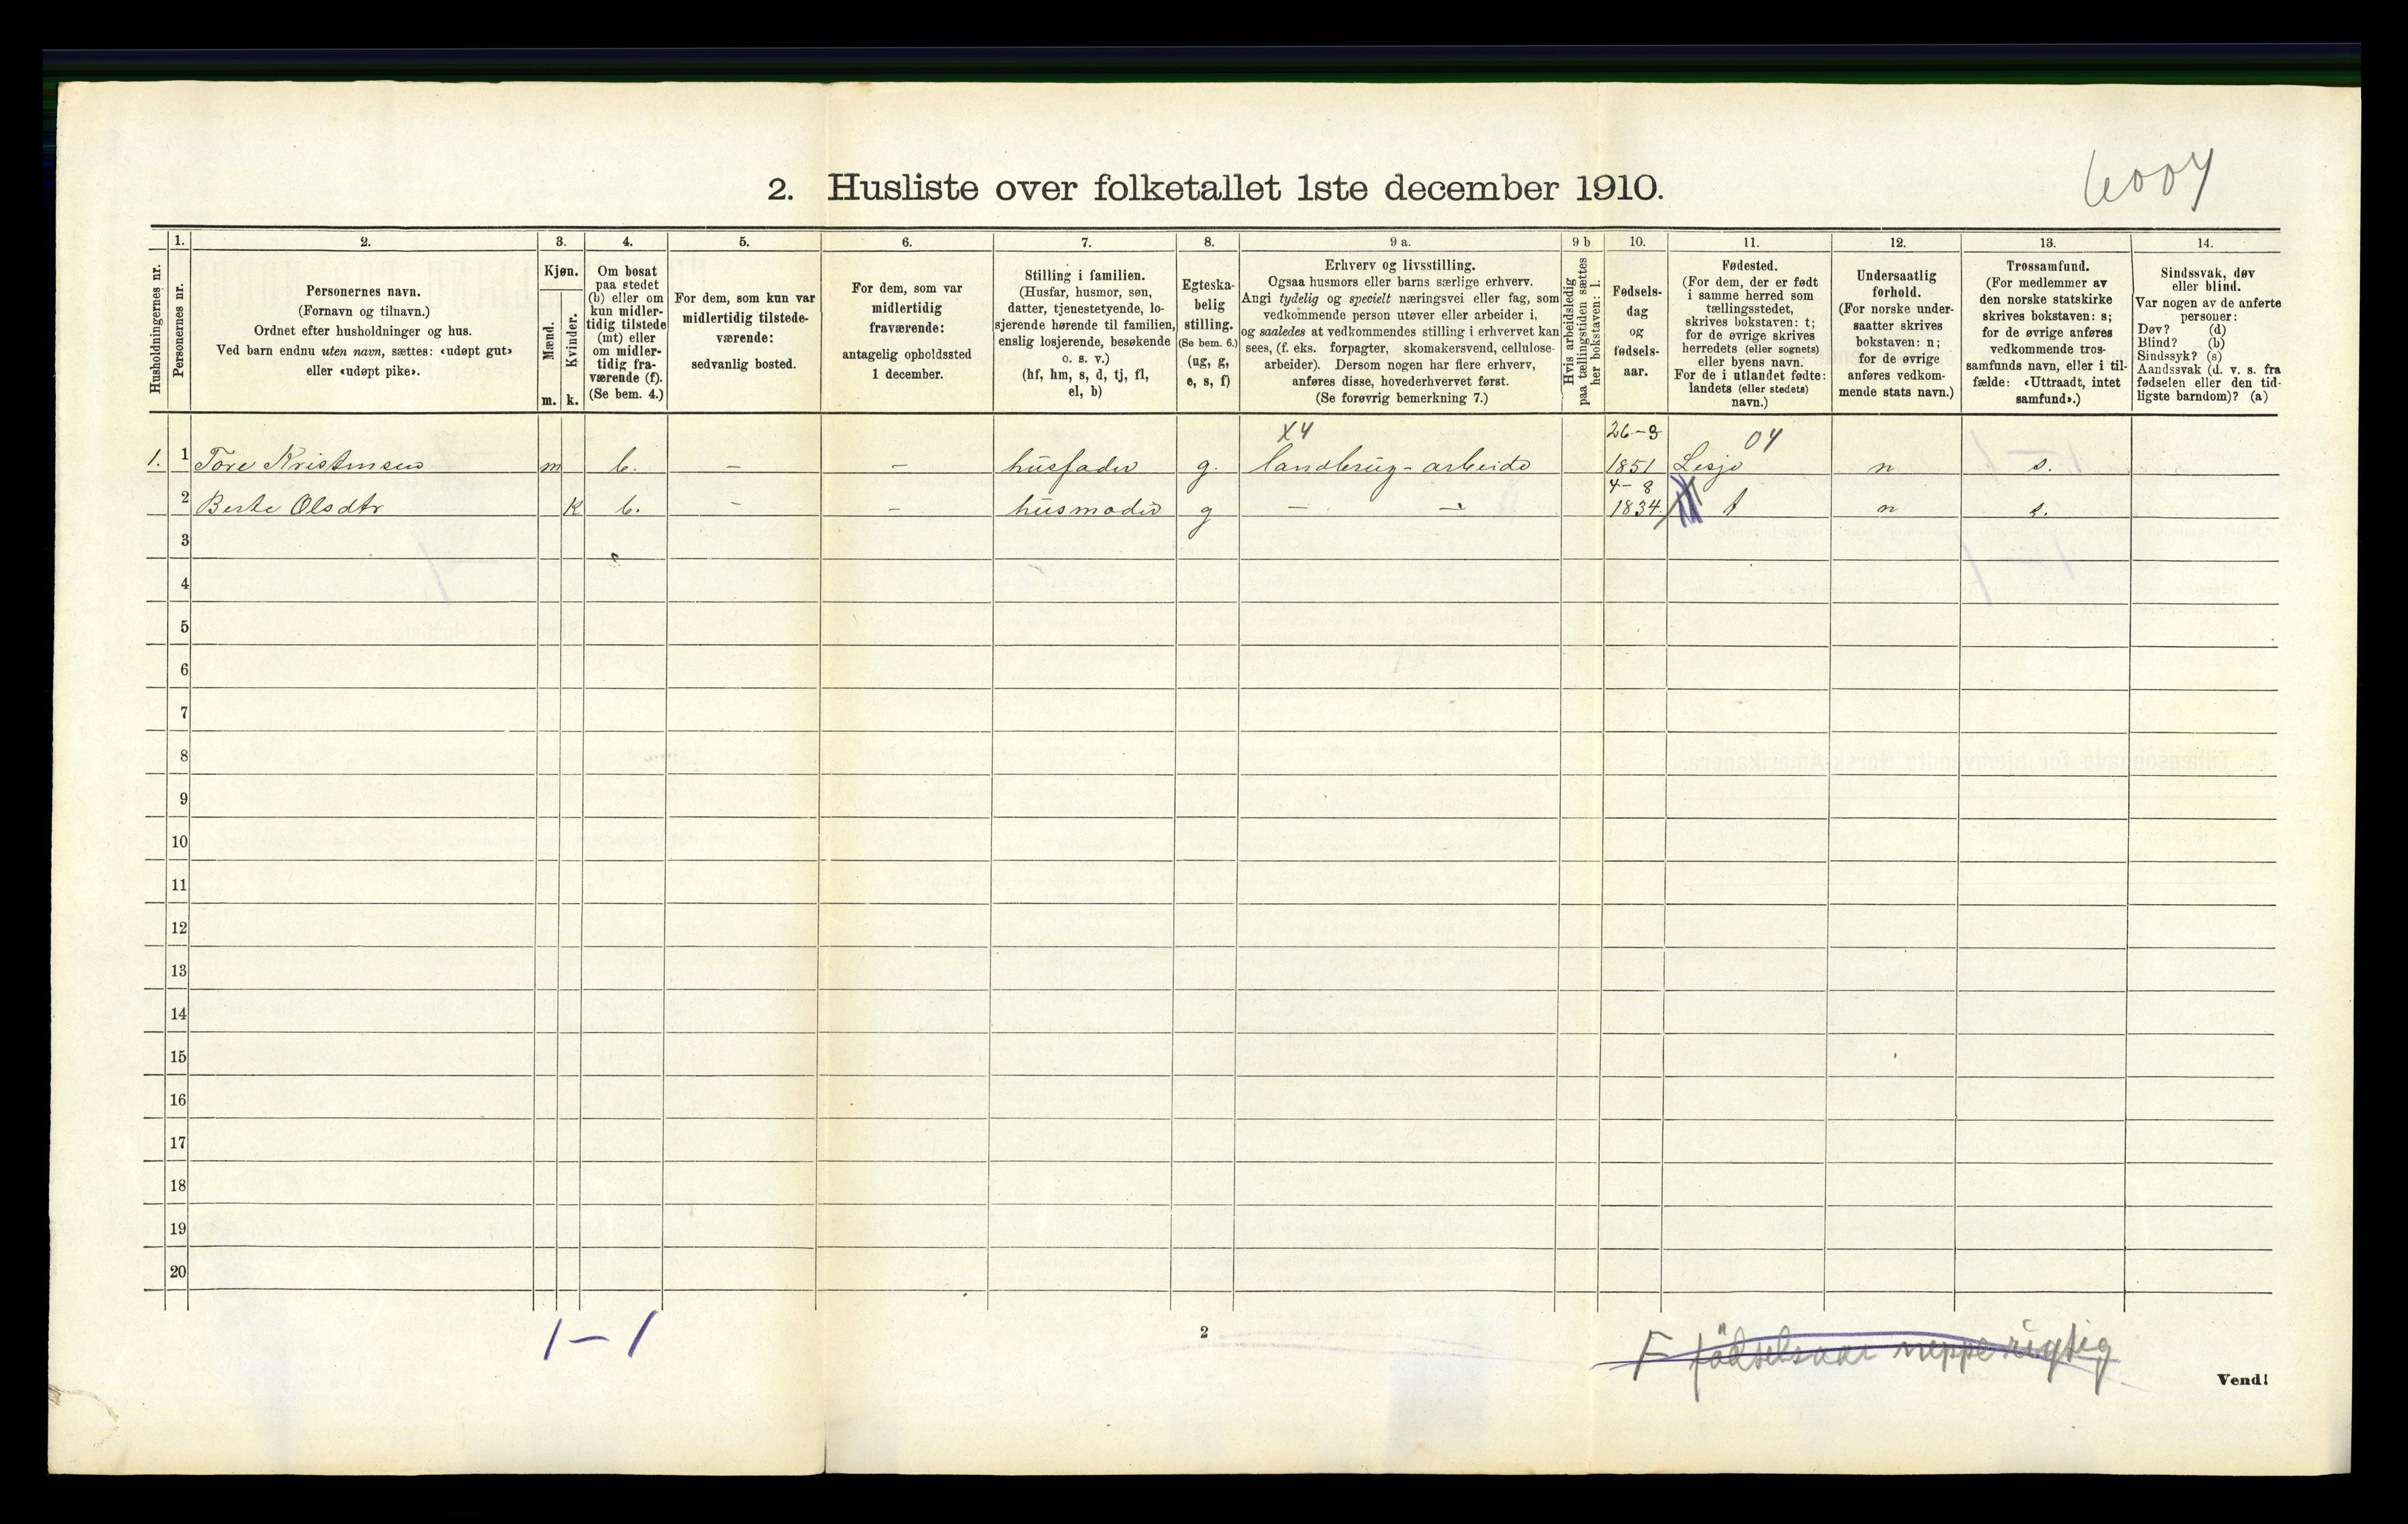 6004
2. Husliste over folketallet 1ste december 1910.
Husholdningernes nr.
1.
Personernes nr.
2.
Personernes navn.
(Fornavn og tilnavn.)
Ordnet efter husholdninger og hus.
Ved barn endnu uten navn, sættes: «udøpt gut»
eller «udøpt pike».
3.
Kjøn.
Mænd.
Kvinder.
m.
k.
4.
Om bosat
paa stedet
(b) eller om
kun midler-
tidig tilstede
(mt) eller
om midler-
tidig fra-
værende (f).
(Se bem. 4.)
5.
For dem, som kun var
midlertidig tilstede-
værende:
sedvanlig bosted.
6.
For dem, som var
midlertidig
fraværende:
antagelig opholdssted
1 december.
7.
Stilling i familien.
(Husfar, husmor, søn,
datter, tjenestetyende, lo-
sjerende hørende til familien,
enslig losjerende, besøkende
o. s. v.)
(hf, hm, s, d, tj, fl,
el, b)
8.
Egteska-
belig
stilling.
(Se bem. 6.)
(ug, g,
e, s, f)
9 a.
Erhverv og livsstilling.
Ogsaa husmors eller barns særlige erhverv.
Angi tydelig og specielt næringsvei eller fag, som
vedkommende person utøver eller arbeider i,
og saaledes at vedkommendes stilling i erhvervet kan
sees, (f. eks. forpagter, skomakersvend, cellulose-
arbeider). Dersom nogen har flere erhverv,
anføres disse, hovederhvervet først.
(Se forøvrig bemerkning 7.)
9 b
Hvis arbeidsledig
paa tællingstiden sættes
her bokstaven: l.
10.
Fødsels-
dag
og
fødsels-
aar.
11.
Fødested.
(For dem, der er født
i samme herred som
tællingsstedet,
skrives bokstaven: t;
for de øvrige skrives
herredets (eller sognets)
eller byens navn.
For de i utlandet fødte:
landets (eller stedets)
navn.)
12.
Undersaatlig
forhold.
(For norske under-
saatter skrives
bokstaven: n;
for de øvrige
anføres vedkom-
mende stats navn.)
13.
Trossamfund.
(For medlemmer av
den norske statskirke
skrives bokstaven: s;
for de øvrige anføres
vedkommende tros-
samfunds navn, eller i til-
fælde: «Uttraadt, intet
samfund».)
14.
Sindssvak, døv
eller blind.
Var nogen av de anførte
personer:
Døv? (d)
Blind? (b)
Sindssyk? (s)
Aandssvak (d. v. s. fra
fødselen eller den tid-
ligste barndom)? (a)
X4 26-3 04
1. 1 Tore Kristensen m b. – – husfader g. landbrug-arbeide 1851 Lesje n s.
4-8
2 Berte Olsdtr k b. – – husmoder g – – 1834 t n s.
3
4
5
6
7
8
9
10
11
12
13
14
15
16
17
18
19
20
1 – 1
2
F födselsaar neppe rigtig
Vend!